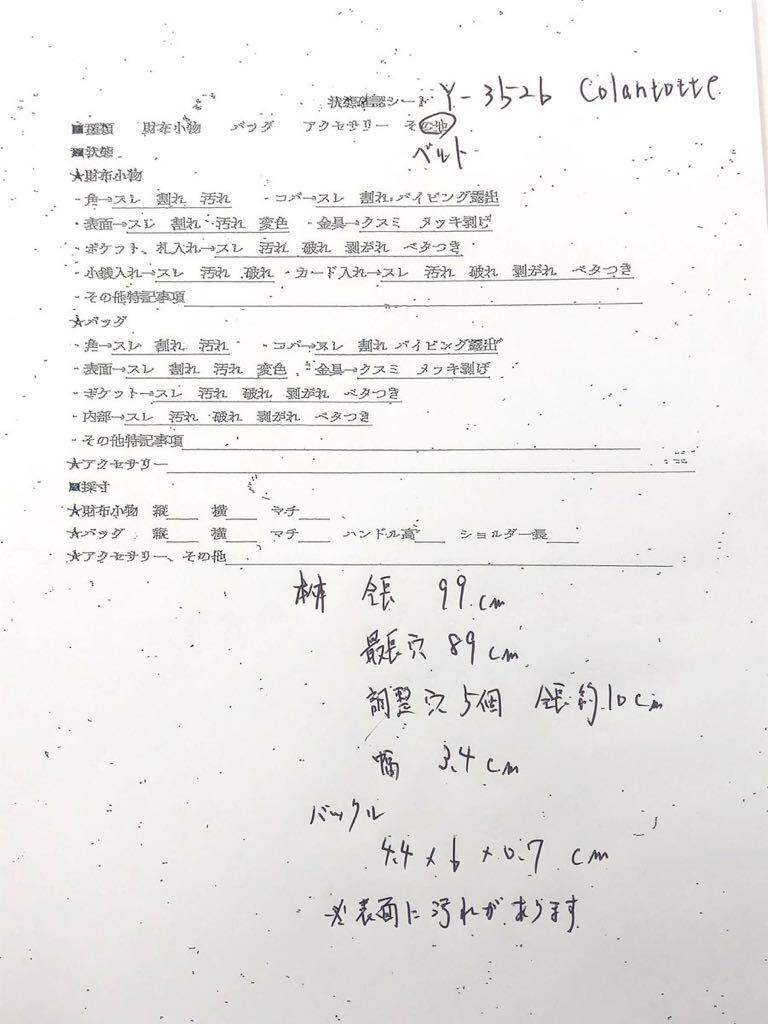 状態確認シート Y-3526 Colantotte
■種類 財布小物 バッグ アクセサリー その他
ベルト
■状態
★財布小物
・角→スレ 割れ 汚れ ・コバ→スレ 割れ パイピング露出
・表面→スレ 割れ 汚れ 変色 ・金具→クスミ メッキ剥げ
・ポケット、札入れ→スレ 汚れ 破れ 剥がれ ベタつき
・小銭入れ→スレ 汚れ 破れ ・カード入れ→スレ 汚れ 破れ 剥がれ ベタつき
・その他特記事項
★バッグ
・角→スレ 割れ 汚れ ・コバ→スレ 割れ パイピング露出
・表面→スレ 割れ 汚れ 変色 ・金具→クスミ メッキ剥げ
・ポケット→スレ 汚れ 破れ 剥がれ ベタつき
・内部→スレ 汚れ 破れ 剥がれ ベタつき
・その他特記事項
★アクセサリー
■採寸
★財布小物 縦 横 マチ
★バッグ 縦 横 マチ ハンドル高 ショルダー長
★アクセサリー、その他
本体 全長 99cm
最長穴 89cm
調整穴5個 全長約10cm
幅 3.4cm
バックル
4.4×6×0.7cm
※表面に汚れがあります